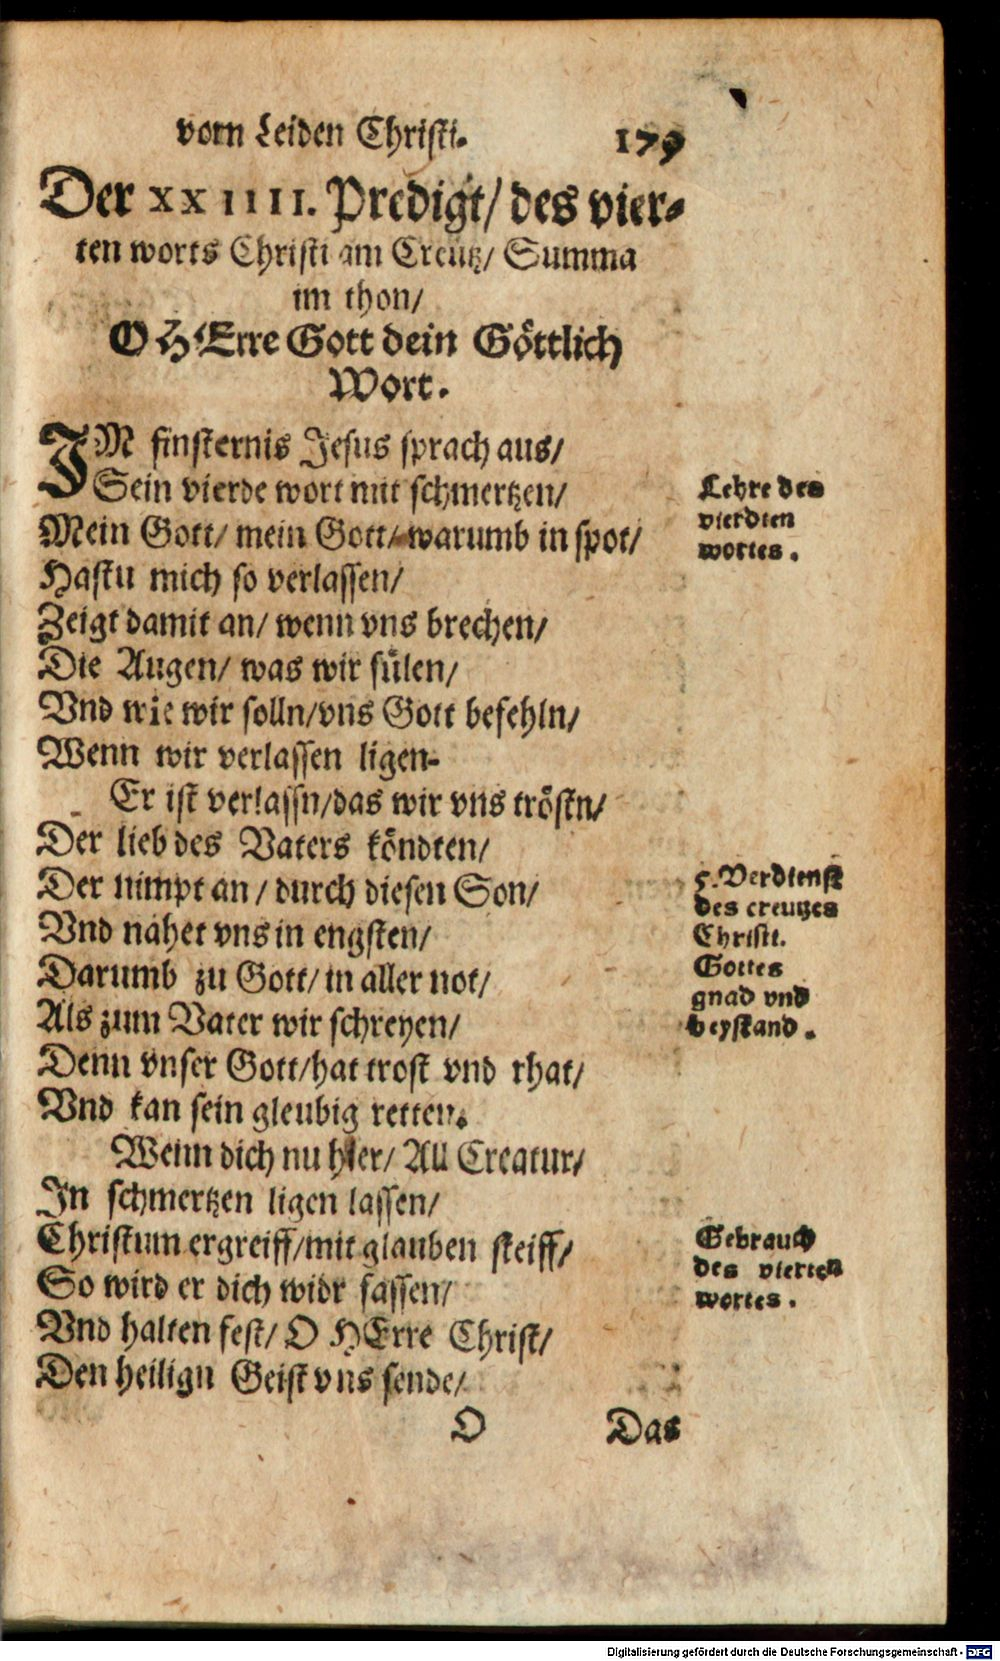 vom Leiden Christi. 179
Der XXIIII. Predigt/ des vier-
ten worts Christi am Creutz/ Summa
im thon/
O HErre Gott dein Göttlich
Wort.
IM finsternis Jesus sprach aus/
Sein vierde wort mit schmertzen/
Mein Gott/ mein Gott/ warumb in spot/
Hastu mich so verlassen/
Zeigt damit an/ wenn vns brechen/
Die Augen/ was wir fülen/
Vnd wie wir solln/vns Gott befehln/
Wenn wir verlassen ligen.
Er ist verlassn/das wir vns tröstn/
Der lieb des Vaters köndten/
Der nimpt an / durch diesen Son/
Vnd nahet vns in engsten/
Darumb zu Gott/ in aller not/
Als zum Vater wir schreyen/
Denn vnser Gott/hat trost vnd rhat/
Vnd kan sein gleubig retten.
Wenn dich nu hier/ All Creatur/
In schmertzen ligen lassen/
Christum ergreiff/mit glauben steiff/
So wird er dich widr fassen/
Vnd halten fest/ O HErre Christ/
Den heilign Geist vns sende/
O Das
Lehre des
vierdten
wortes.
5. Verdienst
des creutzes
Christi.
Gottes
gnad vnd
beystand.
Gebrauch
des vierten
wortes.
Digitalisierung gefördert durch die Deutsche Forschungsgemeinschaft - DFG